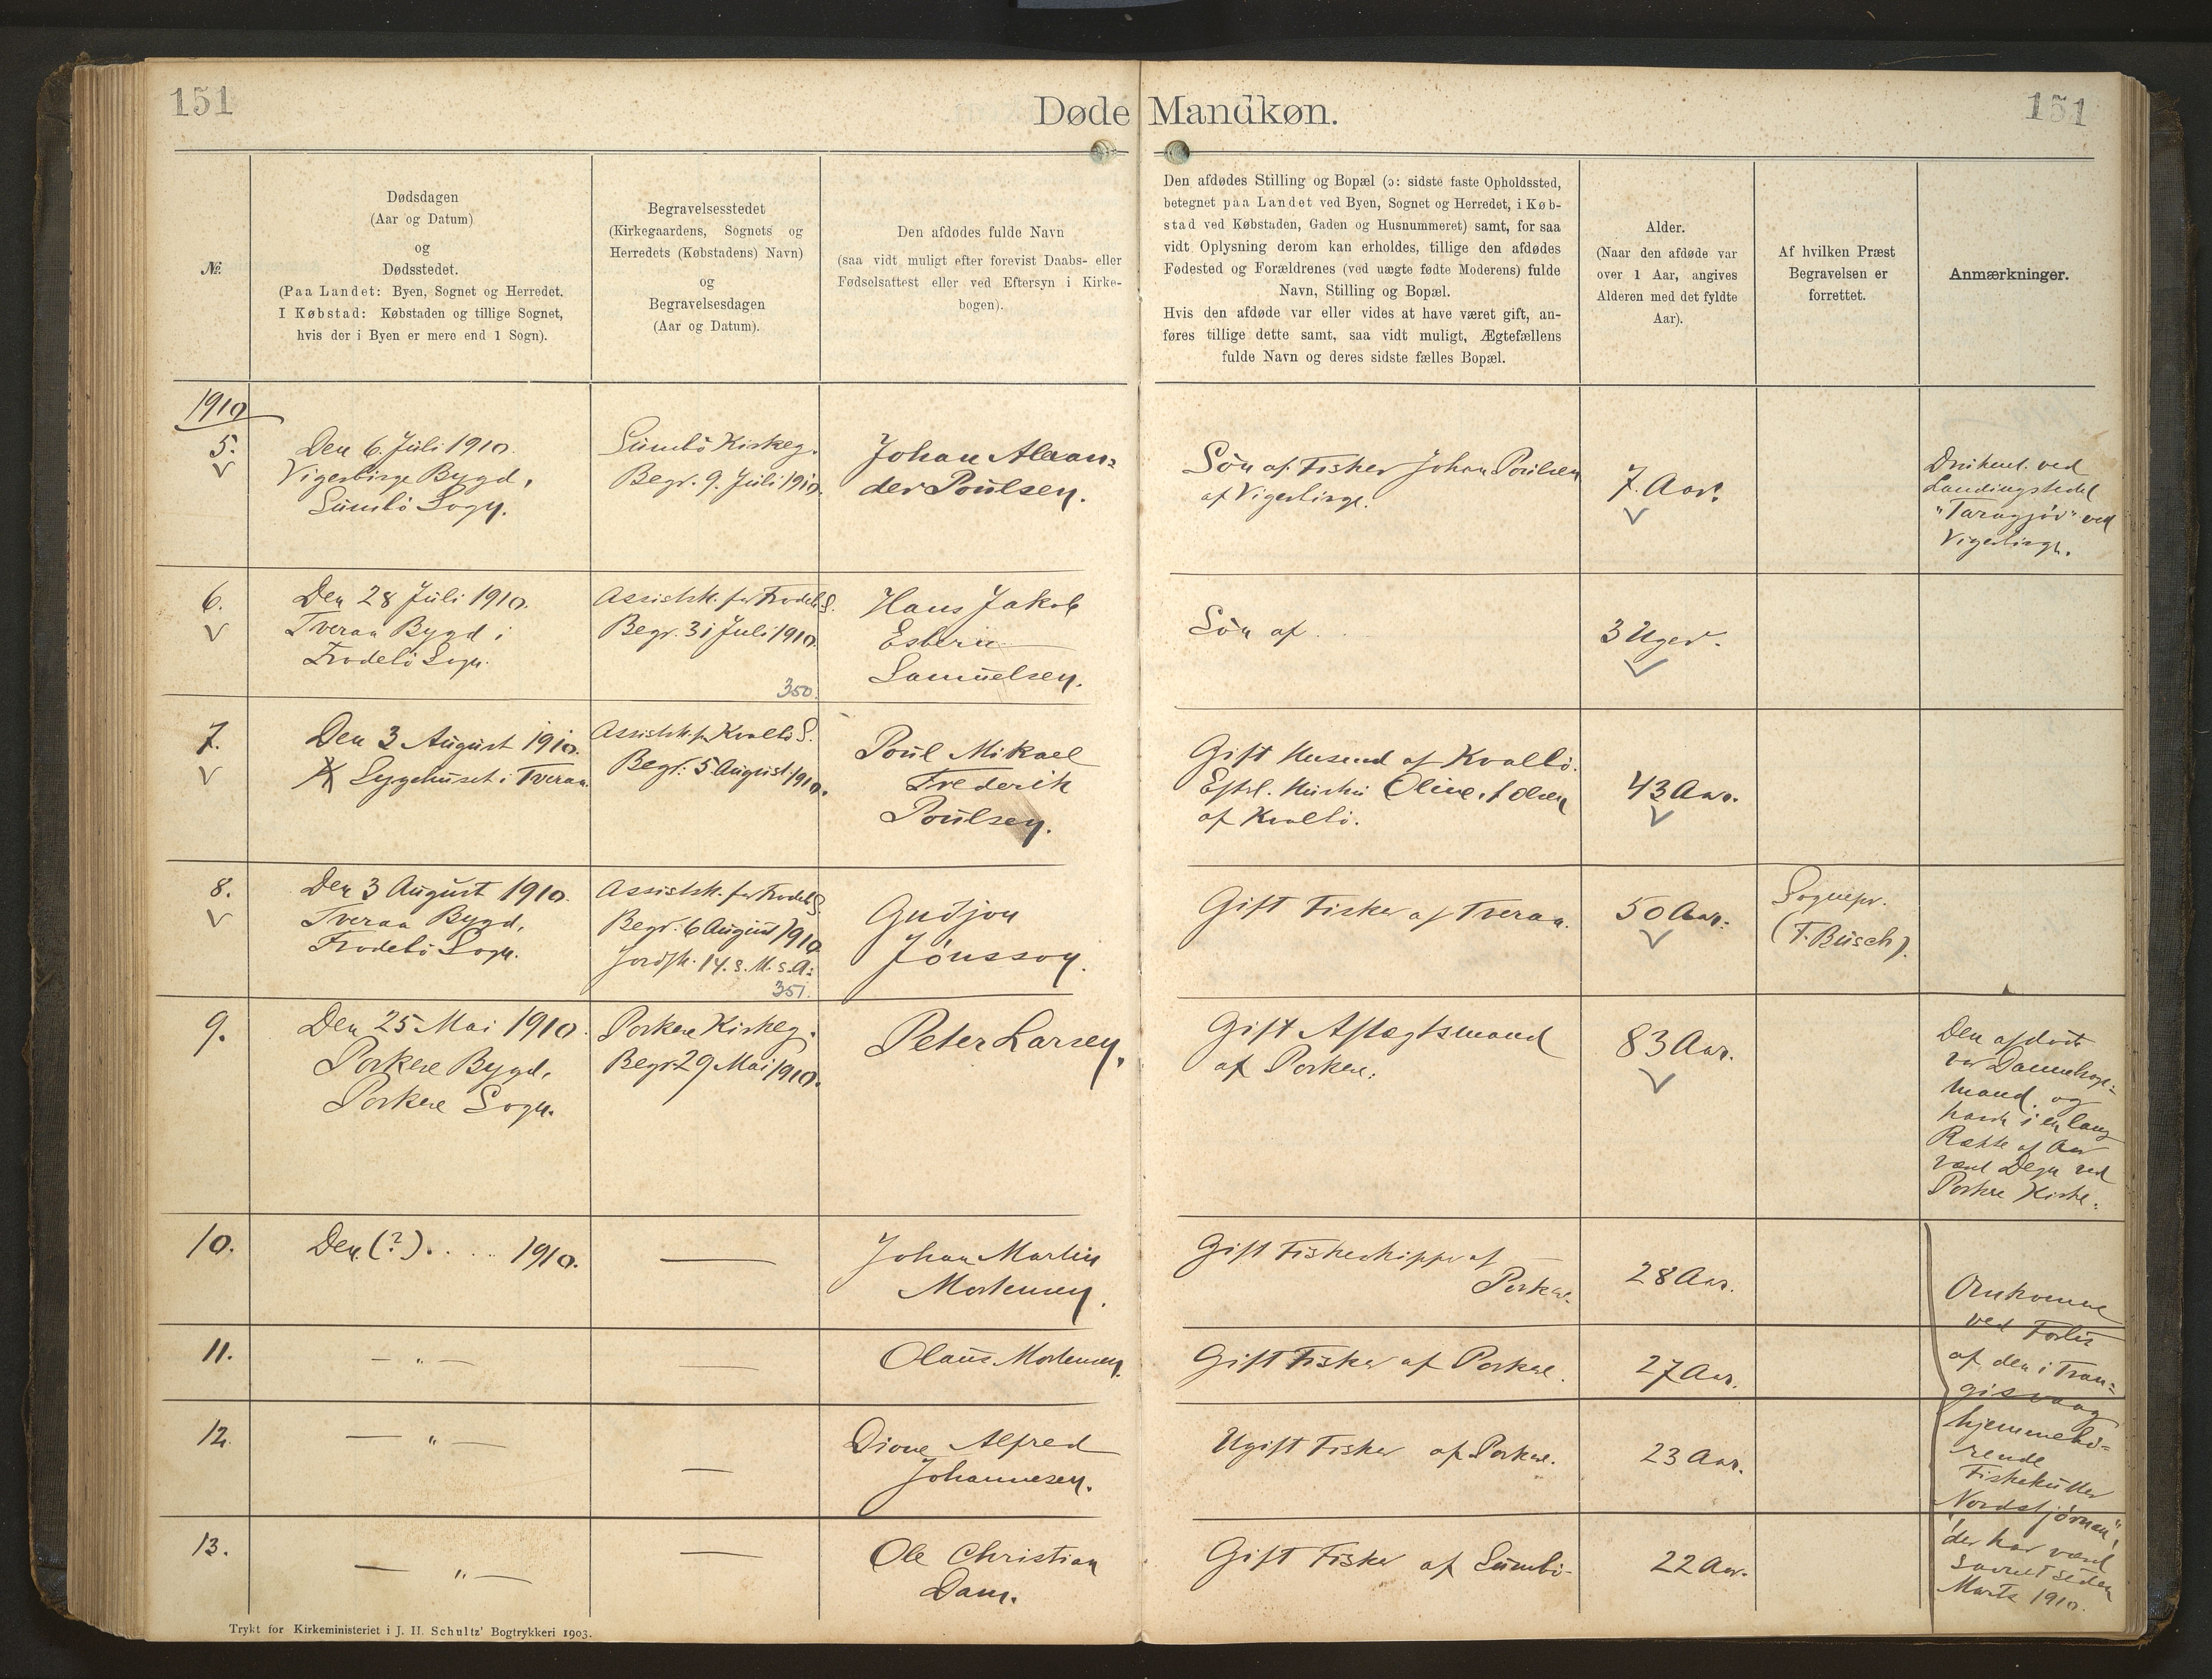 151
Døde Mandkøn.
151
№
Dødsdagen
(Aar og Datum)
og
Dødsstedet.
(Paa Landet: Byen, Sognet og Herredet.
I Købstad: Købstaden og tillige Sognet,
hvis der i Byen er mere end 1 Sogn).
Begravelsesstedet
(Kirkegaardens, Sognets og
Herredets (Købstadens) Navn)
og
Begravelsesdagen
(Aar og Datum).
Den afdødes fulde Navn
(saa vidt muligt efter forevist Daabs- eller
Fødselsattest eller ved Eftersyn i Kirke-
bogen).
Den afdødes Stilling og Bopæl (ɔ: sidste faste Opholdssted,
betegnet paa Landet ved Byen, Sognet og Herredet, i Køb-
stad ved Købstaden, Gaden og Husnummeret) samt, for saa
vidt Oplysning derom kan erholdes, tillige den afdødes
Fødested og Forældrenes (ved uægte fødte Moderens) fulde
Navn, Stilling og Bopæl.
Hvis den afdøde var eller vides at have været gift, an-
føres tillige dette samt, saa vidt muligt, Ægtefællens
fulde Navn og deres sidste fælles Bopæl.
Alder.
(Naar den afdøde var
over 1 Aar, angives
Alderen med det fyldte
Aar).
Af hvilken Præst
Begravelsen er
forrettet.
Anmærkninger.
1910
5.
Den 6. Juli 1910.
Vigerbirge Bygd,
Sumbö Sogn.
Sumbö Kirkeg.
Begr. 9. Juli 1910.
Johan Alexan-
der Poulsen.
Søn af Fisker Johan Poulsen
af Vigerbirge.
7. Aar.
Druknet ved
Landingstedet
ved
Vigerbirge.
6.
Den 28 Juli 1910.
Tveraa Bygd i
Frodebö Sogn.
Assistk. for Frodeb. S.
Begr. 31 Juli 1910.
350.
Hans Jakob
Esbern
Samuelsen.
Søn af . .
3 Uger.
7.
Den 3 August 1910.
Sygehuset i Tveraa.
Assistk. for Kvalbö S.
Begr: 5 August 1910.
Poul Mikael
Frederik
Poulsen.
Gift Husmd af Kvalbö.
Eftrl. Hustru Oline, f Olsen
af Kvalbö.
43 Aar.
8.
Den 3 August 1910.
Tveraa Bygd,
Frodebö Sogn.
Assistsk. for Frodeb S.
Begr. 6 August 1910
Jordfk. 14. s. M. s. A:
351.
Gudjon
Jónsson.
Gift Fisker af Tveraa.
50 Aar:
Sognepr.
(F. Busch).
9.
Den 25 Mai 1910.
Porkere Bygd,
Porkere Sogn.
Porkere Kirkeg.
Begr 29 Mai 1910.
Peter Larsen.
Gift Aftægtsmand
af Porkere.
83 Aar.
Den afdøde
var Dannebrogs-
mand og
havde i en lang
Række af Aar
været Degn ved
Porkere Kirke.
10.
Den (?). . . . . 1910.
—
Johan Martin
Mortensen.
Gift Fiskerskipper af
Porkere
28 Aar.
Omkomne
ved Forlis
af den i Tran-
gisvaag
hjemmehö-
rende
Fiskekutter
"Nordstjörnen",
der har været
savnet siden
Marts 1910.
11.
— " —
—
Olaus Mortensen.
Gift Fisker af Porkere.
27 Aar.
12.
— " —
—
Dione Alfred
Johannesen.
Ugift Fisker af Porkere.
23 Aar.
13.
— " —
—
Ole Christian
Dam.
Gift Fisker af Sumbö-
22 Aar.
Trykt for Kirkeministeriet i J. H. Schultz' Bogtrykkeri 1903.